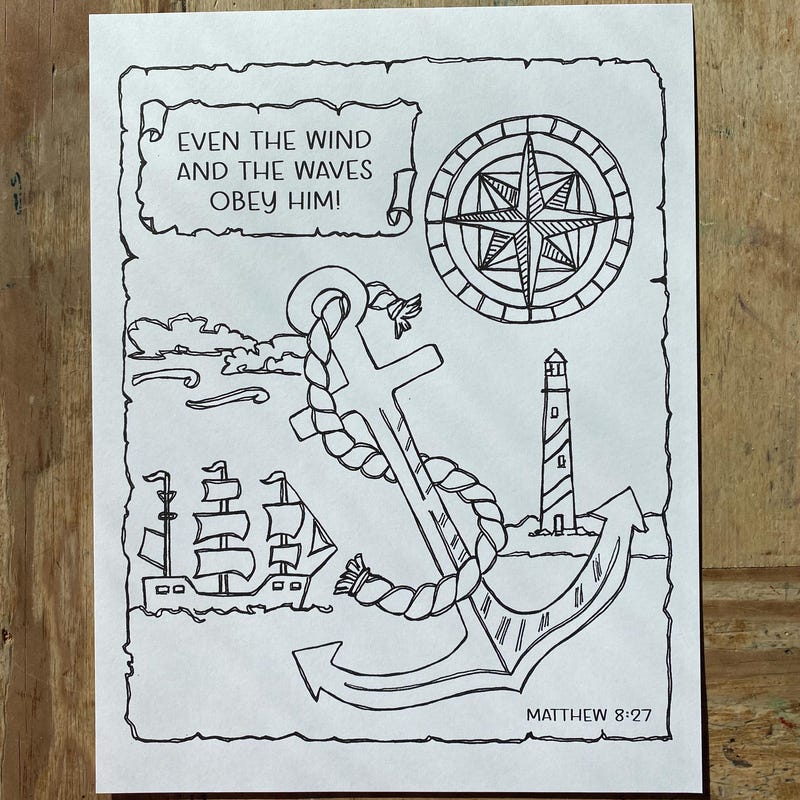 EVEN THE WIND
AND THE WAVES
OBEY HIM!
MATTHEW 8:27